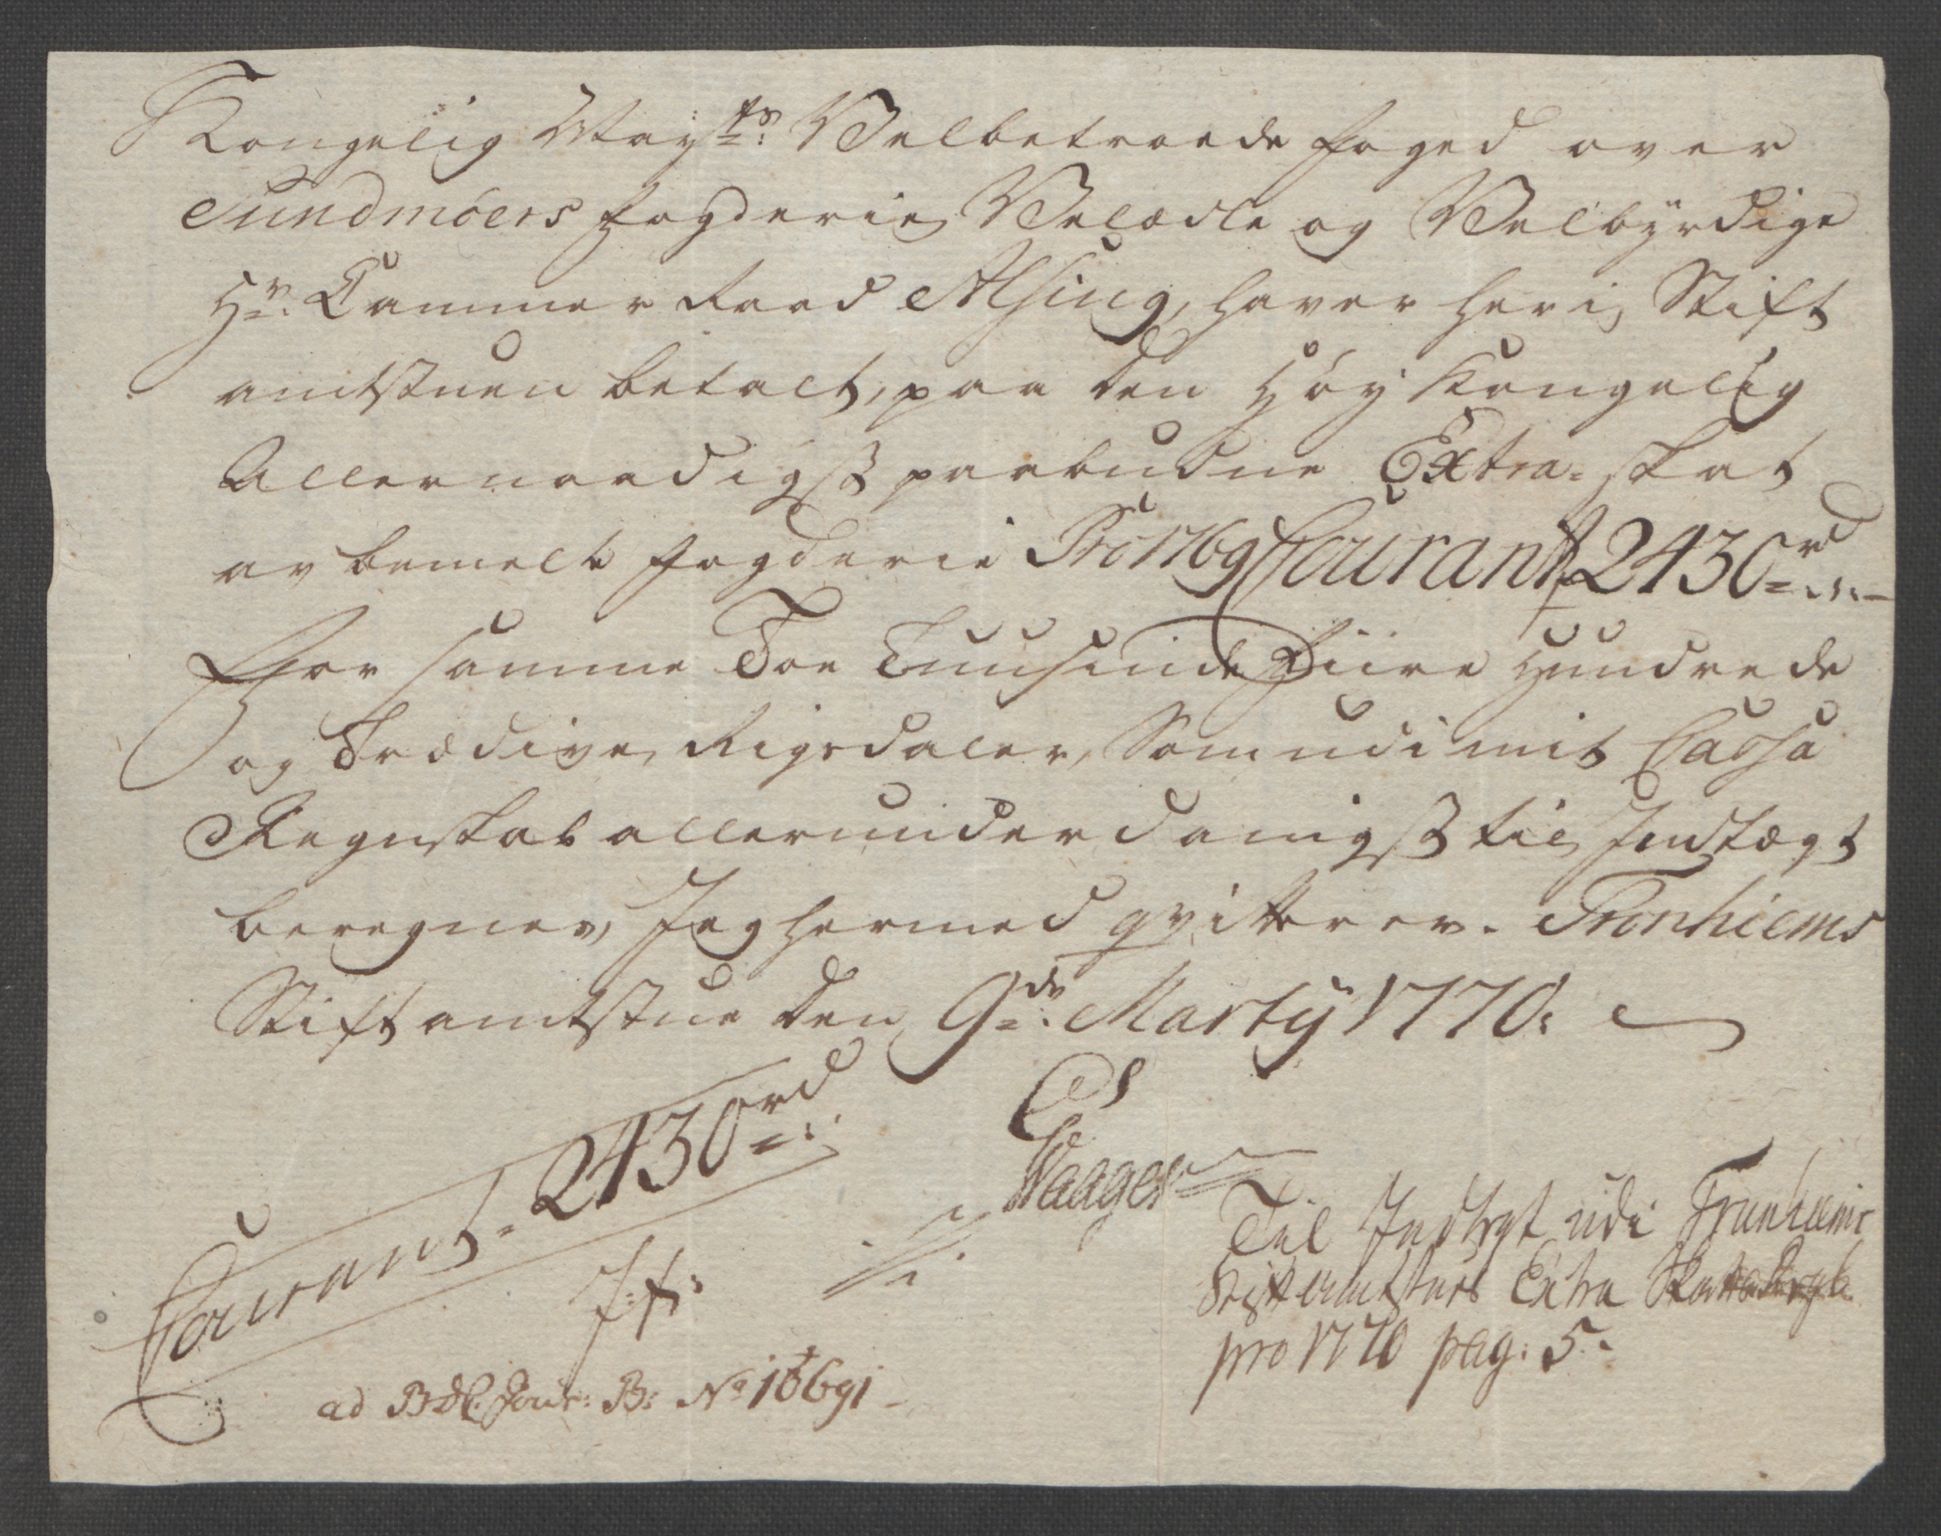 Kongelig Mayts. Velbetroede foged over
Sundmöers fogderie, Velædle og Velbÿrdige
Hr. Cammer Raad Alsing, haver her i Stift
amtstuen betalt, paa den Höy Kongelig
Allernaadigst paabudne Extra-skat
av bemelte fogderie Pro 1769 Courant 2430 rd
ffor samme Toe Tuusinde, fiire Hundrede
og Trædive, Rigsdaler, Som udi mit Cassa
Regnskab allerunderdanigst til Indtægt
beregnes, Jeg hermed qvitterer. Tronhiems
Stiftamtstue den 9de Martij 1770.
Courant. 2430 rd
Waager
Til Indtegt udi Trunhiems
Stiftamtstues Extra
pro 1770 pag: 5.
ad Jour: B: No 16691